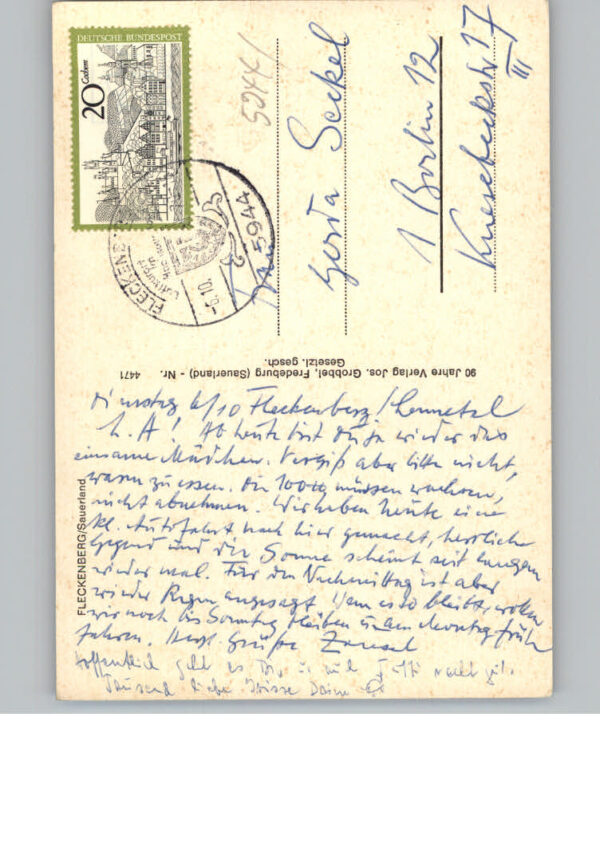 DEUTSCHE BUNDESPOST
20
Cochem
5944
FLECKENB
-6.10.
5944
Gerda Seckel
1 Berlin 12
Knesebeckstr 17
III
90 Jahre Verlag Jos. Grobbel, Fredeburg (Sauerland) - Nr. 4471
Gesetzl. gesch.
FLECKENBERG/Sauerland
Dienstag 6/10 Fleckenberg/Lennetal
L. A! Ab heute bist Du ja wieder das
einsame Mädchen. Vergiß aber bitte nicht,
was zu essen. Die 100 müssen wachsen,
nicht abnehmen. Wir haben heute eine
kl. Autofahrt nach hier gemacht, herrliche
Gegend und die Sonne scheint seit langem
wieder mal. Für den Nachmittag ist aber
wieder Regen angesagt. Wenn es so bleibt, wollen
wir noch bis Sonntag bleiben u. am Montag früh
fahren. Herzl. Grüße
Hoffentlich geht es Dir u. gut.
Tausend liebe Deine